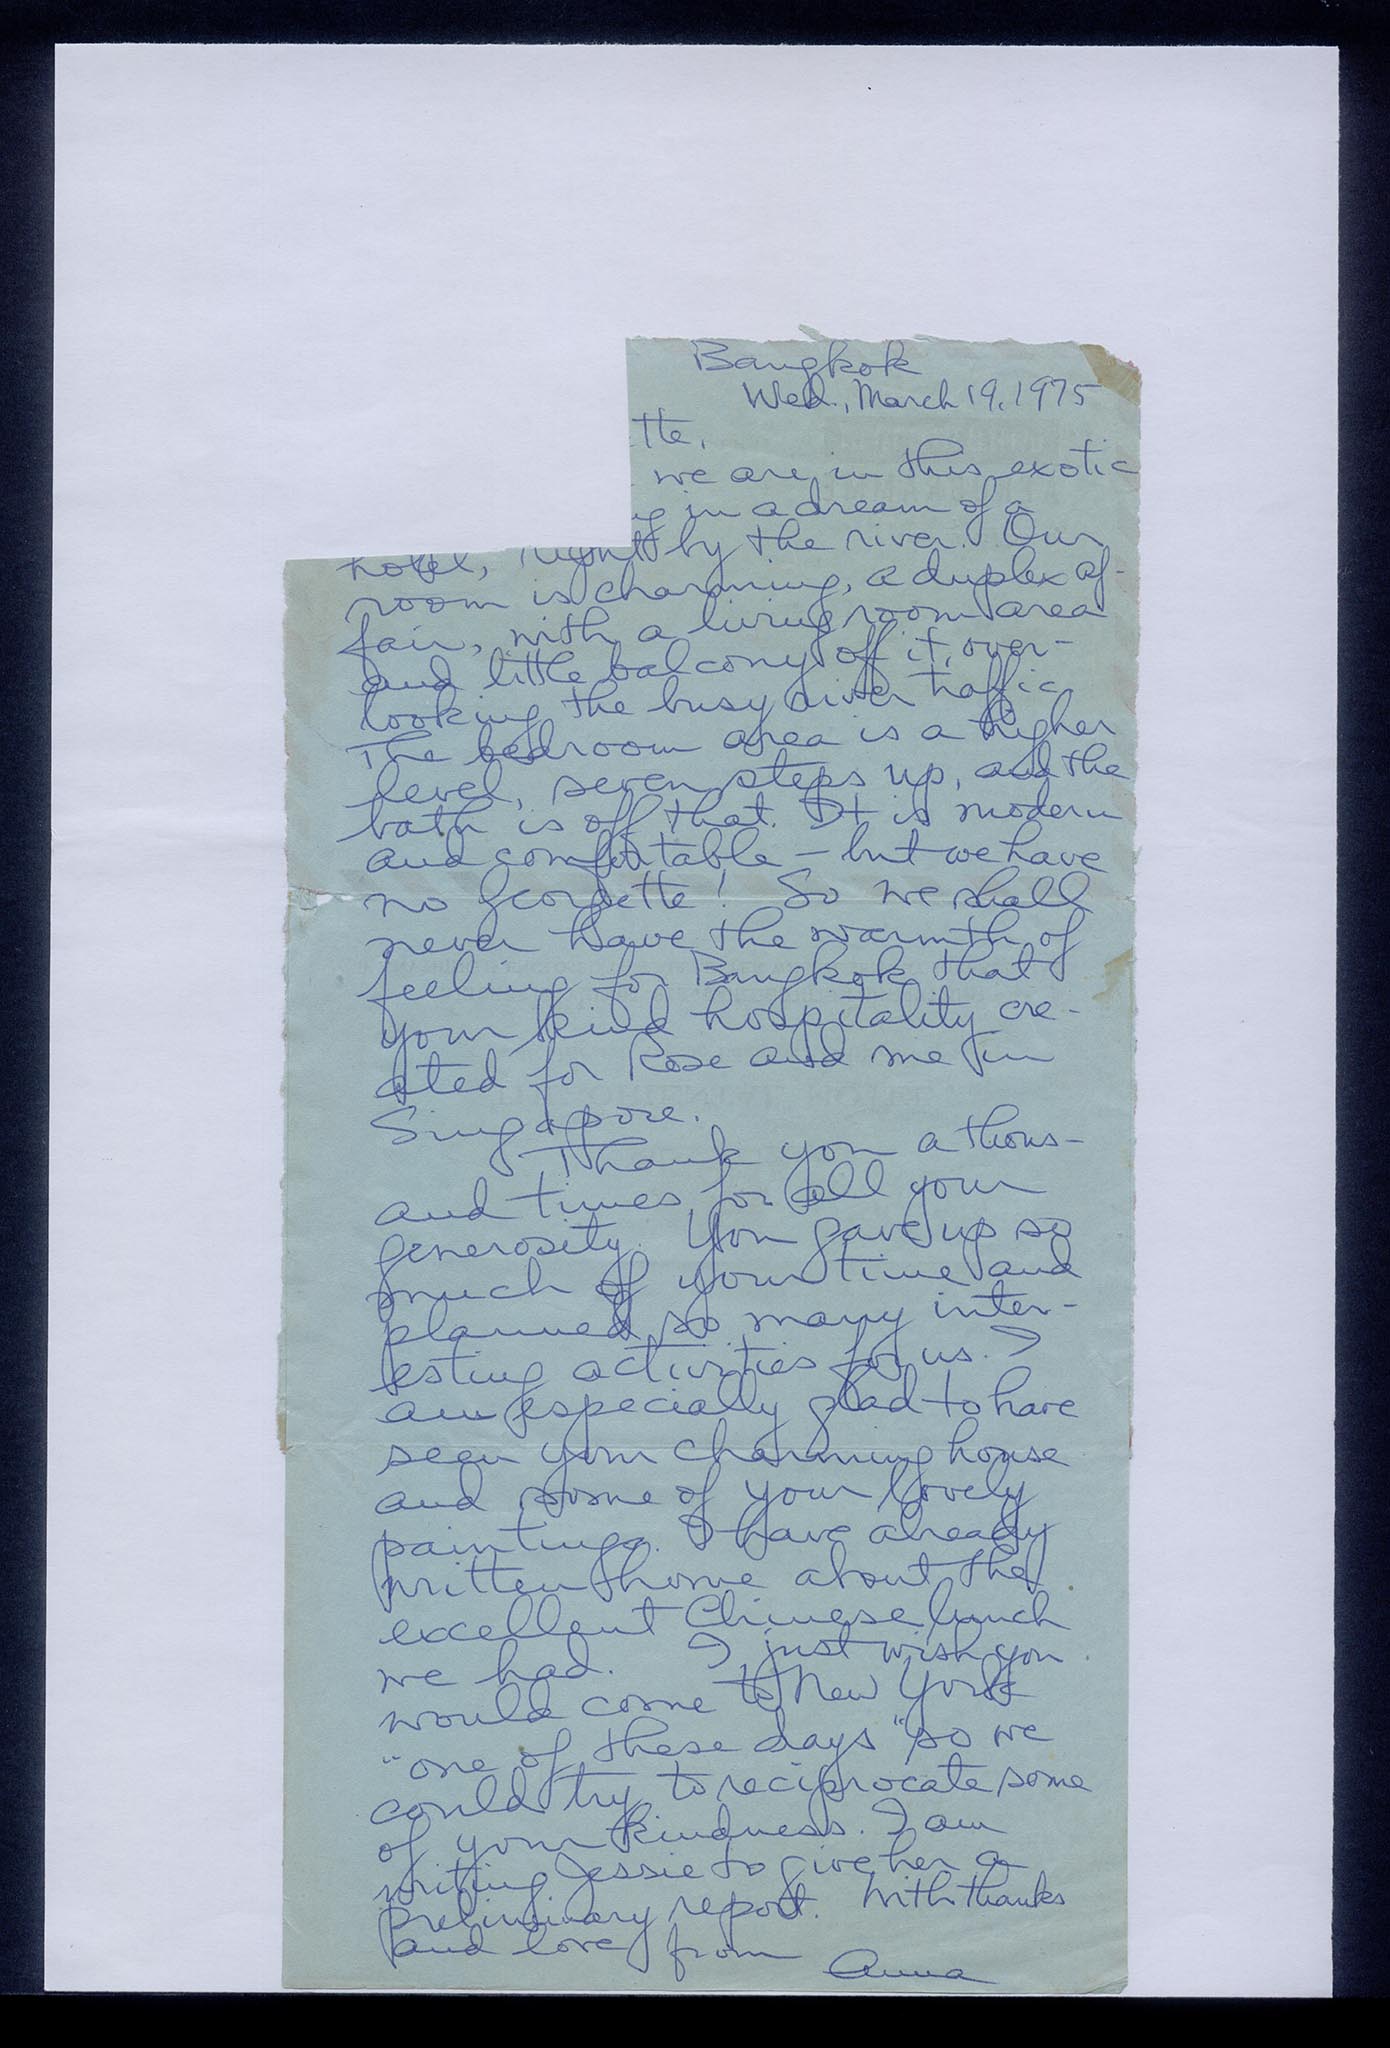 Bangkok
Wed., March 19, 1975
tte,
we are in this exotic
in a dream of a
hotel, right by the river. Our
room is charming, a duplex af-
fair, with a living room area
and little balcony off it, over-
looking the busy river traffic
The bedroom area is a higher
level, seven steps up, and the
bath is off that. It is modern
and comfortable – but we have
no Georgette! So we shall
never have the warmth of
feeling for Bangkok that
your kind hospitality cre-
ated for Rose and me in
Singapore.
Thank you a thous-
and times for all your
generosity. You gave up so
much of your time and
planned so many inter-
esting activities for us. I
am especially glad to have
seen your charming house
and some of your lovely
paintings. I have already
written home about the
excellent Chinese lunch
we had. I just wish you
would come to New York
"one of these days" so we
could try to reciprocate some
of your kindness. I am
writing Jessie to give her a
preliminary report. With thanks
and love from
Anna